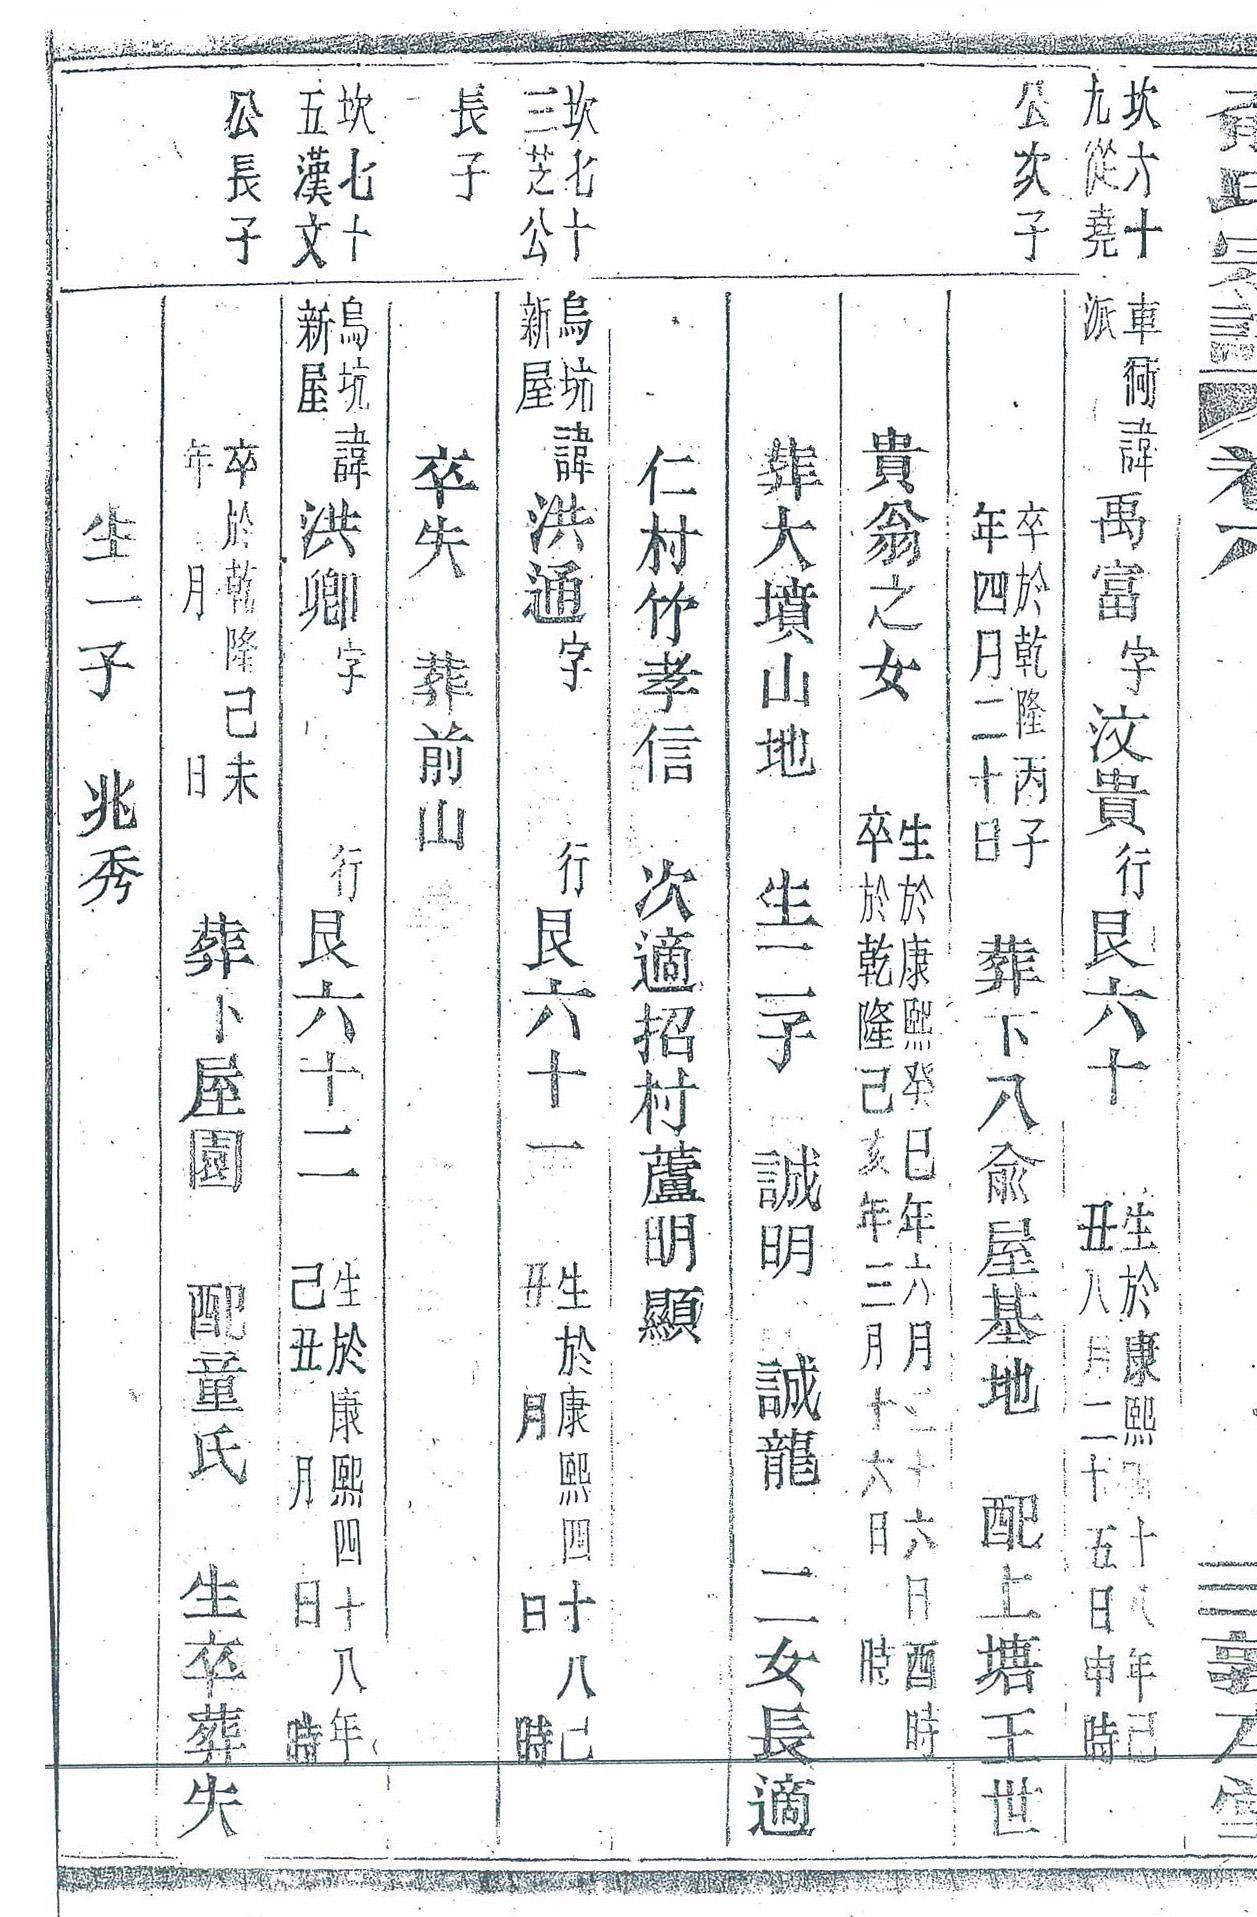 氏宗譜
卷六
坎六十
九從堯
公次子
車衕
派
諱禹富字汶貴行艮六十
生於康熙四十八年己
丑八月二十五日申時
卒於乾隆丙子
年四月二十日
葬下八俞屋基地 配上塘王世
貴翁之女
生於康熙癸巳年六月二十六日酉時
卒於乾隆己亥年三月十六日 時
葬大墳山地 生二子 誠明 誠龍 二女長適
仁村竹孝信 次適招村蘆明顯
坎七十
三芝公
長子
烏坑
新屋
諱洪通字 行艮六十一
生於康熙四十八己
丑 月 日 時
卒失 葬前山
坎七十
五漢文
公長子
烏坑
新屋
諱洪卿字 行艮六十二
生於康熙四十八年
己丑 月 日 時
卒於乾隆己未
年 月 日
葬卜屋園 配童氏 生卒葬失
生一子 兆秀